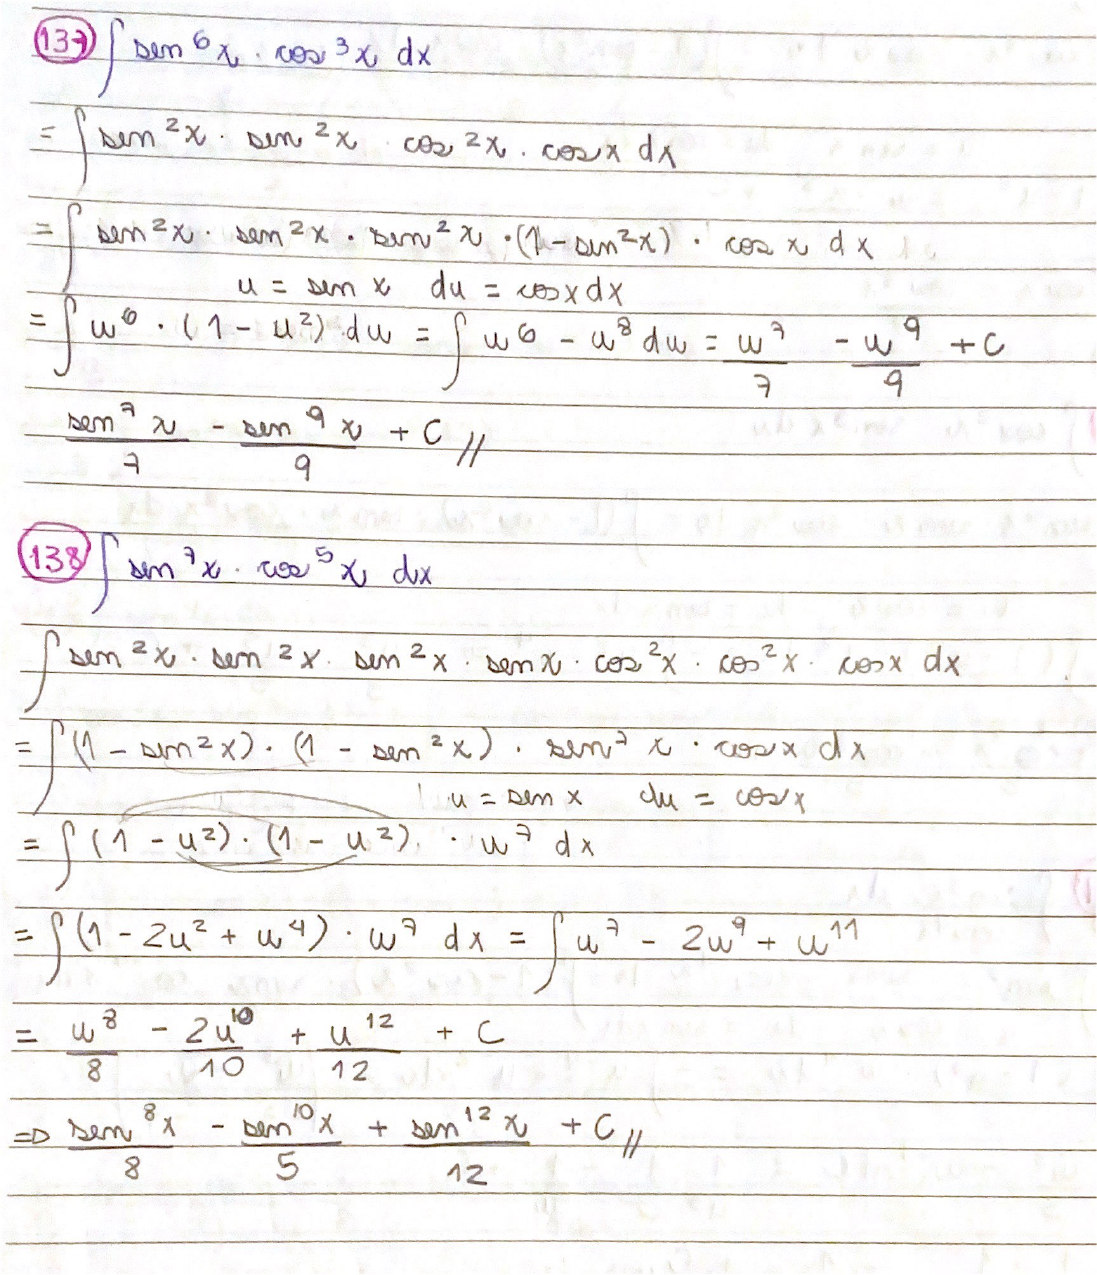 137 ∫ sen⁶x · cos³x dx
= ∫ sen²x · sen²x · cos²x · cosx dx
= ∫ sen²x · sen²x · sen²x · (1 - sen²x) · cos x dx
u = sen x du = cosxdx
= ∫ u⁶ · (1 - u²) du = ∫ u⁶ - u⁸ du = u⁷/7 - u⁹/9 + C
sen⁷x/7 - sen⁹x/9 + C //
138 ∫ sen⁷x · cos⁵x dx
∫ sen²x · sen²x · sen²x · senx · cos²x · cos²x · cosx dx
= ∫ (1 - sen²x) · (1 - sen²x) · sen⁷x · cosx dx
u = sen x du = cosx
= ∫ (1 - u²) · (1 - u²) · u⁷ dx
= ∫ (1 - 2u² + u⁴) · u⁷ dx = ∫ u⁷ - 2u⁹ + u¹¹
= u⁸/8 - 2u¹⁰/10 + u¹²/12 + C
⇒ sen⁸x/8 - sen¹⁰x/5 + sen¹²x/12 + C //